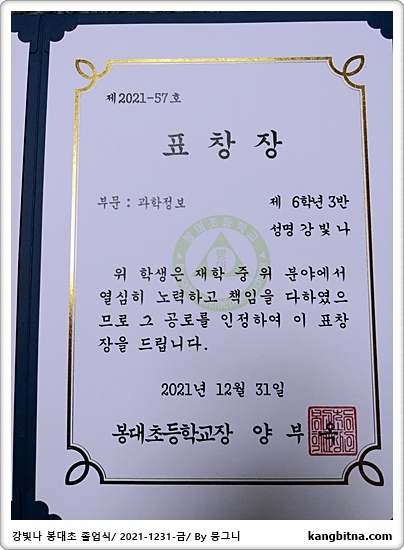 제2021-57호
표 창 장
부문 : 과학정보
제 6학년 3반
성명 강 빛 나
위 학생은 재학 중 위 분야에서
열심히 노력하고 책임을 다하였으
므로 그 공로를 인정하여 이 표창
장을 드립니다.
2021년 12월 31일
봉대초등학교장 양 부 옥
강빛나 봉대초 졸업식/ 2021-1231-금/ By 뭉그니
kangbitna.com